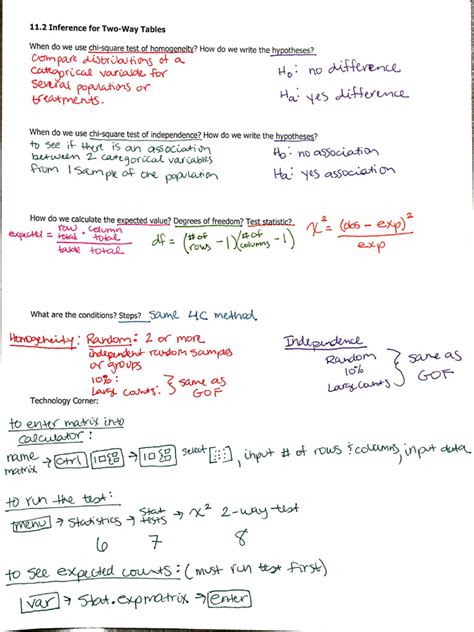 11.2 Inference for Two-Way Tables
When do we use chi-square test of homogeneity? How do we write the hypotheses?
Compare distributions of a
categorical variable for
several populations or
treatments.
H₀: no difference
Ha: yes difference
When do we use chi-square test of independence? How do we write the hypotheses?
to see if there is an association
between 2 categorical variables
from 1 sample of one population
H₀: no association
Ha: yes association
How do we calculate the expected value? Degrees of freedom? Test statistic?
expected = row total · column total / table total
df = (# of rows - 1)(# of columns - 1)
χ² = (obs - exp)² / exp
What are the conditions? Steps? Same 4C method
Homogeneity: Random: 2 or more
independent random samples
or groups
10%:
Large Counts: } same as GOF
Independence
Random
10%
Large Counts } same as GOF
Technology Corner:
to enter matrix into
calculator:
name matrix → ctrl → → select , input # of rows & columns, input data
to run the test:
menu → Statistics → Stat tests → χ² 2-way test
6 7 8
to see expected counts: (must run test first)
var → Stat.expmatrix → enter